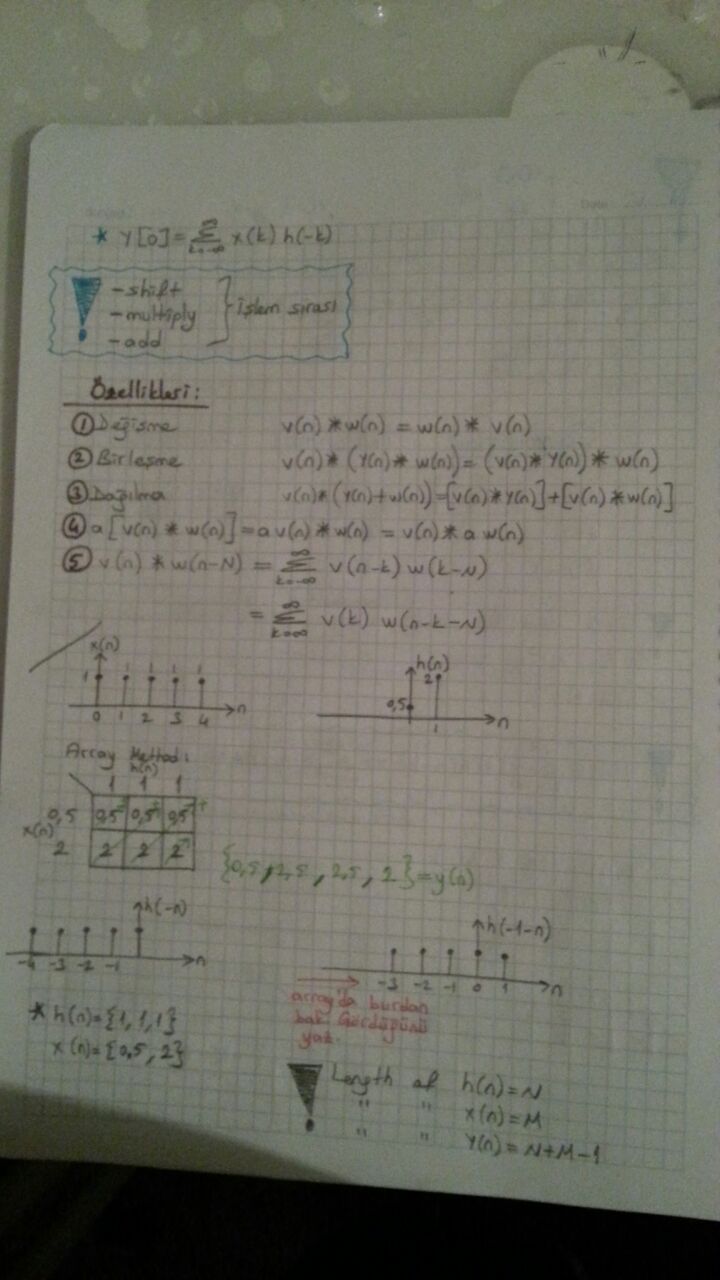 * Y[0] = ∞Σk=-∞ x(k) h(-k)
! - shift
- multiply
- add
} işlem sırası
Özellikleri:
① Değişme v(n) * w(n) = w(n) * v(n)
② Birleşme v(n) * (Y(n) * w(n)) = (v(n) * Y(n)) * w(n)
③ Dağılma v(n) * (Y(n) + w(n)) = [v(n) * Y(n)] + [v(n) * w(n)]
④ a[v(n) * w(n)] = a v(n) * w(n) = v(n) * a w(n)
⑤ v(n) * w(n-N) = ∞Σk=-∞ v(n-k) w(k-N)
= ∞Σk=-∞ v(k) w(n-k-N)
x(n)
1 1 1 1 1
0 1 2 3 4 n
h(n)
2
0,5
1 n
Array Method:
h(n)
1 1 1
0,5 0,5 0,5 0,5
x(n)
2 2 2 2
{0,5, 2,5, 2,5, 2} = y(n)
h(-n)
-4 -3 -2 -1 n
h(-1-n)
-3 -2 -1 0 1 n
array'da burdan
bak Gördüğünü
yaz.
* h(n) = {1, 1, 1}
x(n) = {0,5, 2}
! Length of h(n) = N
" " x(n) = M
" " Y(n) = N+M-1